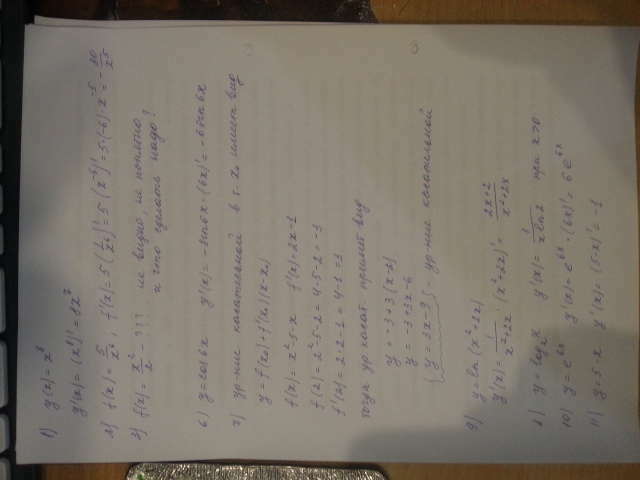 1) y(x) = x⁸
y'(x) = (x⁸)' = 8x⁷
2) f(x) = 5/x⁶; f'(x) = 5(1/x⁶)' = 5(x⁻⁶)' = 5·(-6)·x⁻⁵ = -30/x⁵
3) f(x) = x²/2 - ??? не видно, не понятно
и что сделать надо?
6) y = cos6x y'(x) = -sin6x·(6x)' = -6sin6x
7) ур-ние касательной в т. x₀ имеет вид
y = f(x₀) + f'(x₀)(x-x₀)
f(x) = x²-5·x f'(x) = 2x-1
f(2) = 2²-5·2 = 4-5·2 = -3
f'(2) = 2·2-1 = 4-1 = 3
тогда ур касат. примет вид
y = -3+3(x-2)
y = -3+3x-6
y = 3x-9 - ур-ние касательной
9) y = ln(x²+2x)
y'(x) = 1/(x²+2x) · (x²+2x)' = (2x+2)/(x²+2x)
8) y = log₂x y'(x) = 1/(x ln2) при x>0
10) y = e⁶ˣ y'(x) = e⁶ˣ·(6x)' = 6e⁶ˣ
11) y = 5-x y'(x) = (5-x)' = -1